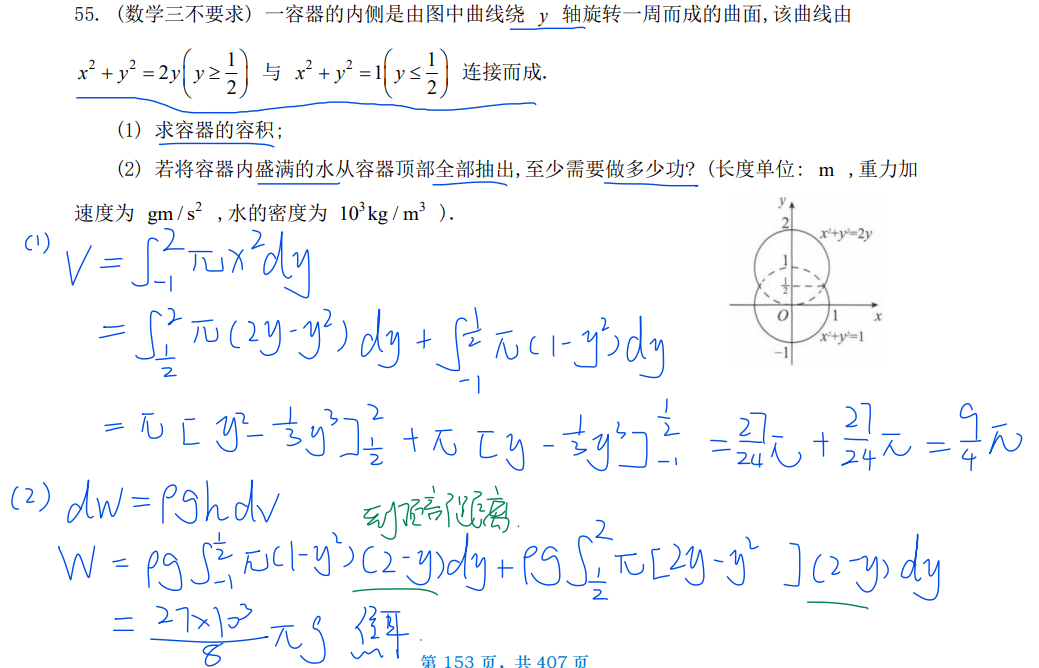 55. (数学三不要求) 一容器的内侧是由图中曲线绕 y 轴旋转一周而成的曲面,该曲线由
x²+y²=2y(y≥1/2) 与 x²+y²=1(y≤1/2) 连接而成.
(1) 求容器的容积;
(2) 若将容器内盛满的水从容器顶部全部抽出,至少需要做多少功? (长度单位: m ,重力加
速度为 gm/s² ,水的密度为 10³kg/m³ ).
y
2
x²+y²=2y
1
1/2
O
1
x
x²+y²=1
-1
(1) V = ∫_{-1}^{2} πx²dy
= ∫_{1/2}^{2} π(2y-y²)dy + ∫_{-1}^{1/2} π(1-y²)dy
= π[y²-1/3y³]_{1/2}^{2} + π[y-1/3y³]_{-1}^{1/2} = 27/24π + 27/24π = 9/4π
(2) dW = ρghdV
到顶部距离.
W = ρg∫_{-1}^{1/2} π(1-y²)(2-y)dy + ρg∫_{1/2}^{2} π[2y-y²](2-y)dy
= 27×10³/8 πg 焦耳.
第 153 页, 共 407 页